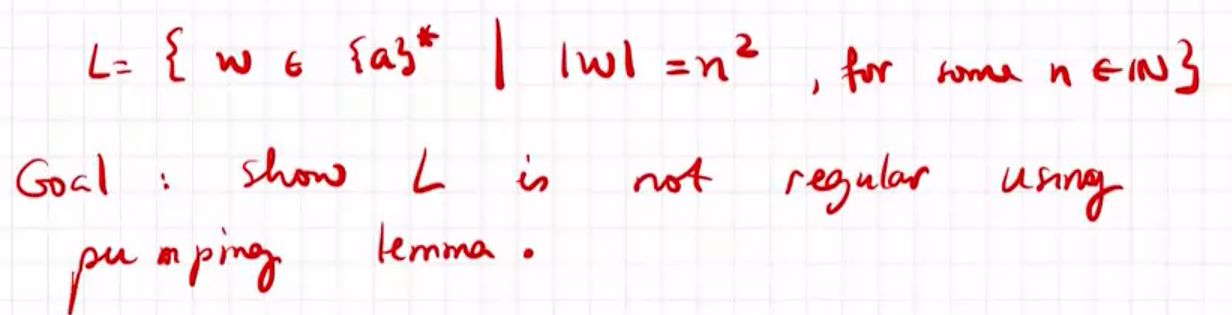 L= { w ∈ {a}* | |w| = n², for some n ∈ ℕ}
Goal : show L is not regular using
pumping lemma.